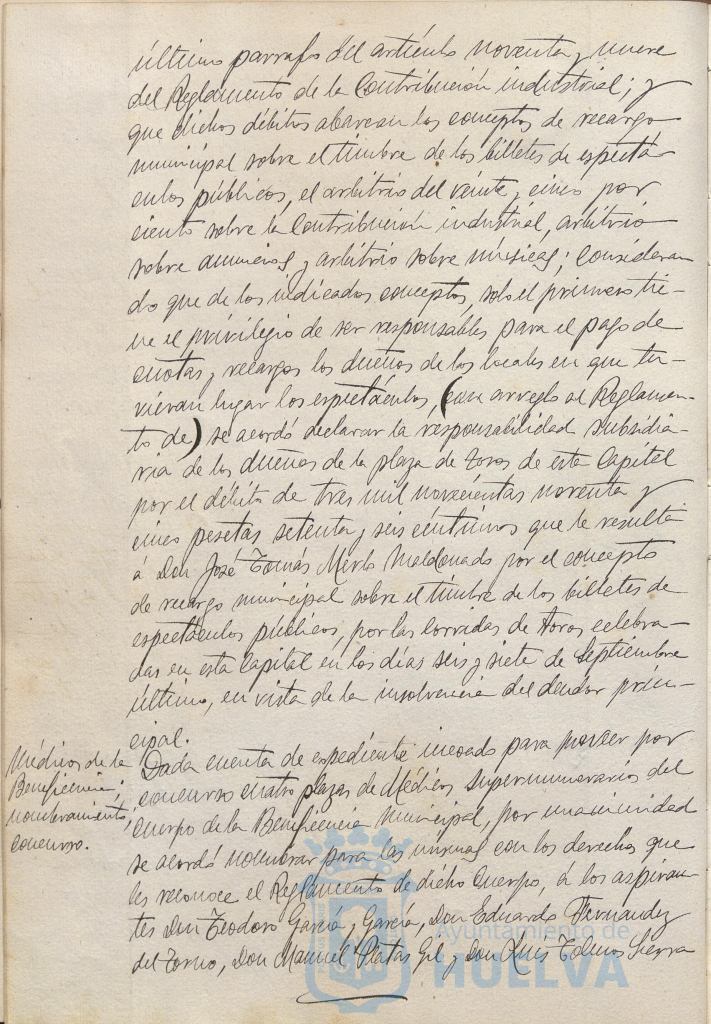 último parrafo del artículo noventa y nueve
del Reglamento de la Contribución industrial; y
que dichos débitos abarcan los conceptos de recargo
municipal sobre el timbre de los billetes de espectá-
culos públicos, el arbitrio del veinte y cinco por
ciento sobre la Contribución industrial, arbitrio
sobre anuncios y arbitrio sobre músicas; consideran
do que de los indicados conceptos, solo el primero tie-
ne el privilegio de ser responsables para el pago de
cuotas y recargos los dueños de los locales en que tu-
vieran lugar los espectáculos, (con arreglo al Reglamen-
to de) se acordó declarar la responsabilidad subsidia-
ria de los dueños de la plaza de toros de esta Capital
por el débito de tres mil novecientas noventa y
cinco pesetas setenta y seis céntimos que le resulta
á Don José Tomás Merlo Maldonado por el concepto
de recargo municipal sobre el timbre de los billetes de
espectáculos públicos, por las corridas de toros celebra-
das en esta Capital en los días seis y siete de Septiembre
último, en vista de la insolvencia del deudor prin-
cipal.
Médicos de la
Beneficencia;
nombramiento,
concurso.
Dada cuenta de expediente incoado para proveer por
concurso cuatro plazas de Médicos Supernumerarios del
Cuerpo de la Beneficencia Municipal, por unanimidad
se acordó nombrar para las mismas con los derechos que
les reconoce el Reglamento de dicho Cuerpo, á los aspiran-
tes Don Teodoro García y García, Don Eduardo Fernandez
del Torno, Don Manuel Platas Gil y Don Luis Sierra
Ayuntamiento de
HUELVA